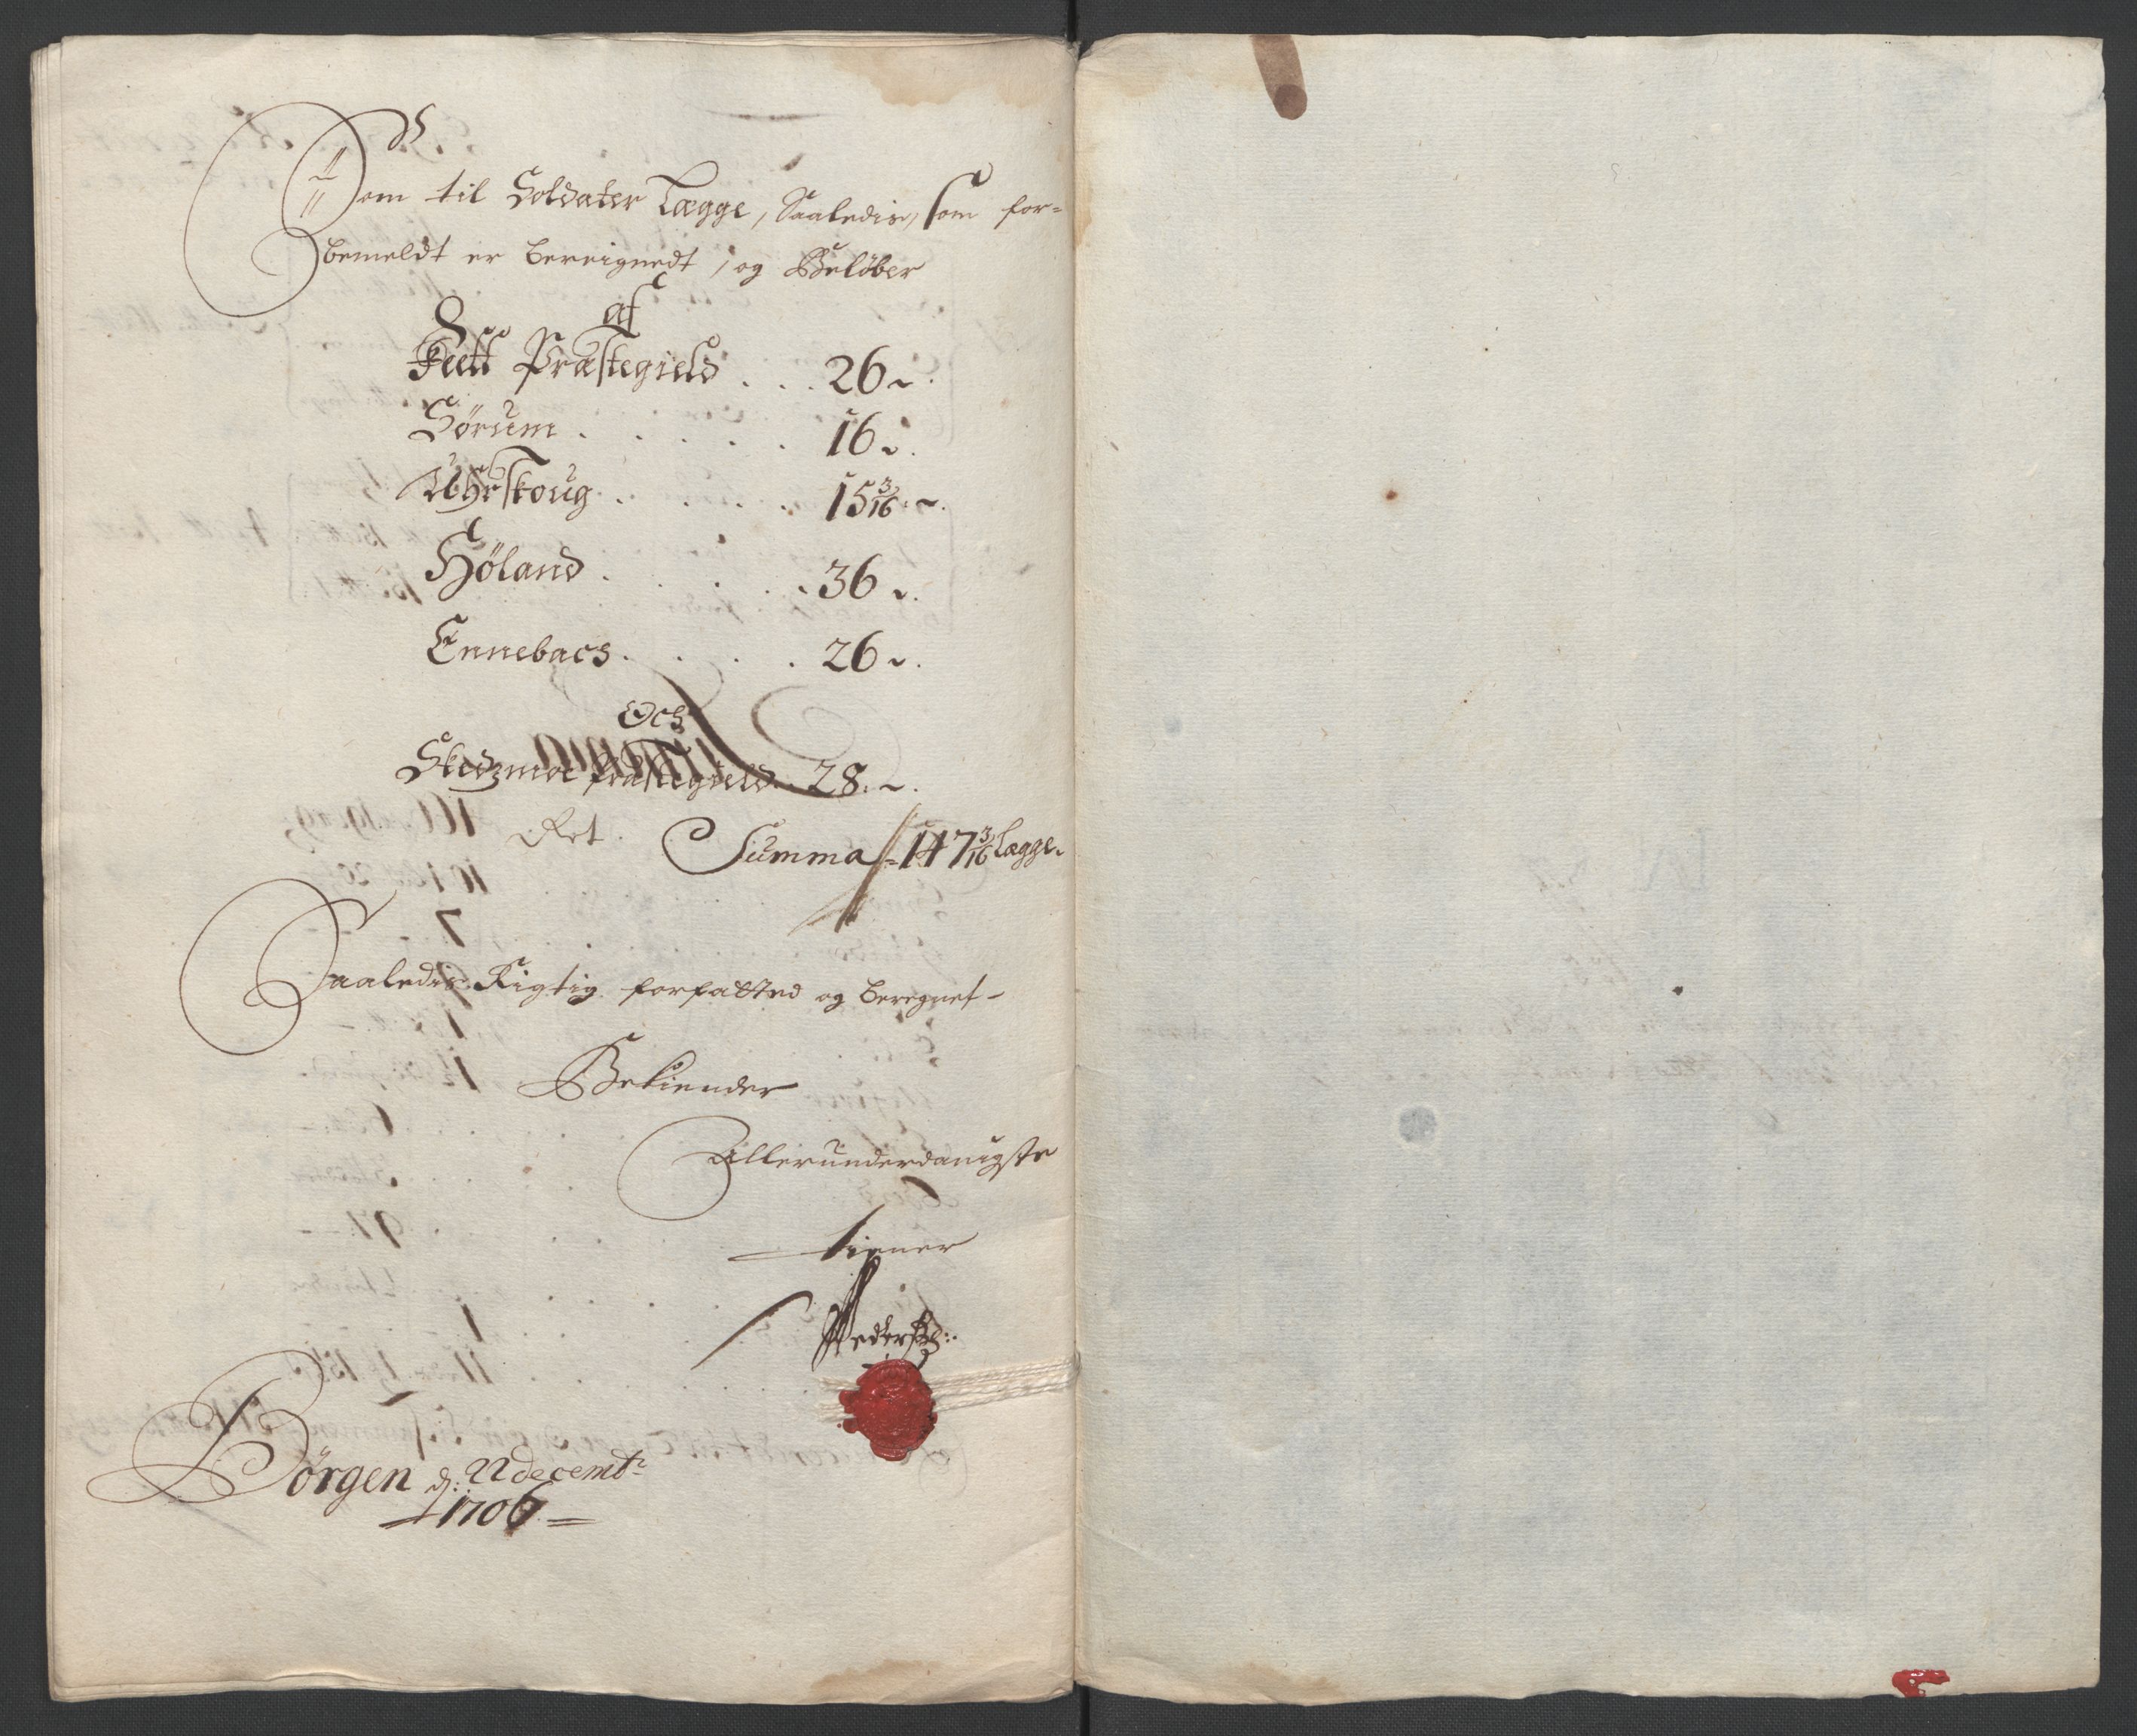 Som til Soldater Lægge, Saaledis, som for-
bemeldt er bereignedt, og Beløber
af
Feett Præstegield . . . 26 ~.
Sørum . . . . . 16 ~.
Uhrskoug . . . . 15 3/16. ~.
Høland . . . . . 36 ~.
Ennebach . . . . 26 ~.
Och
Skedzmoe Præstegield . . 28. ~.
Ret. Summa = 147 3/16 Lægge.
Saaledis Rigtig forfatted og beregnet -
Bekiender
Allerunderdanigste
tiener
Børgen d: 22 decembr
1706